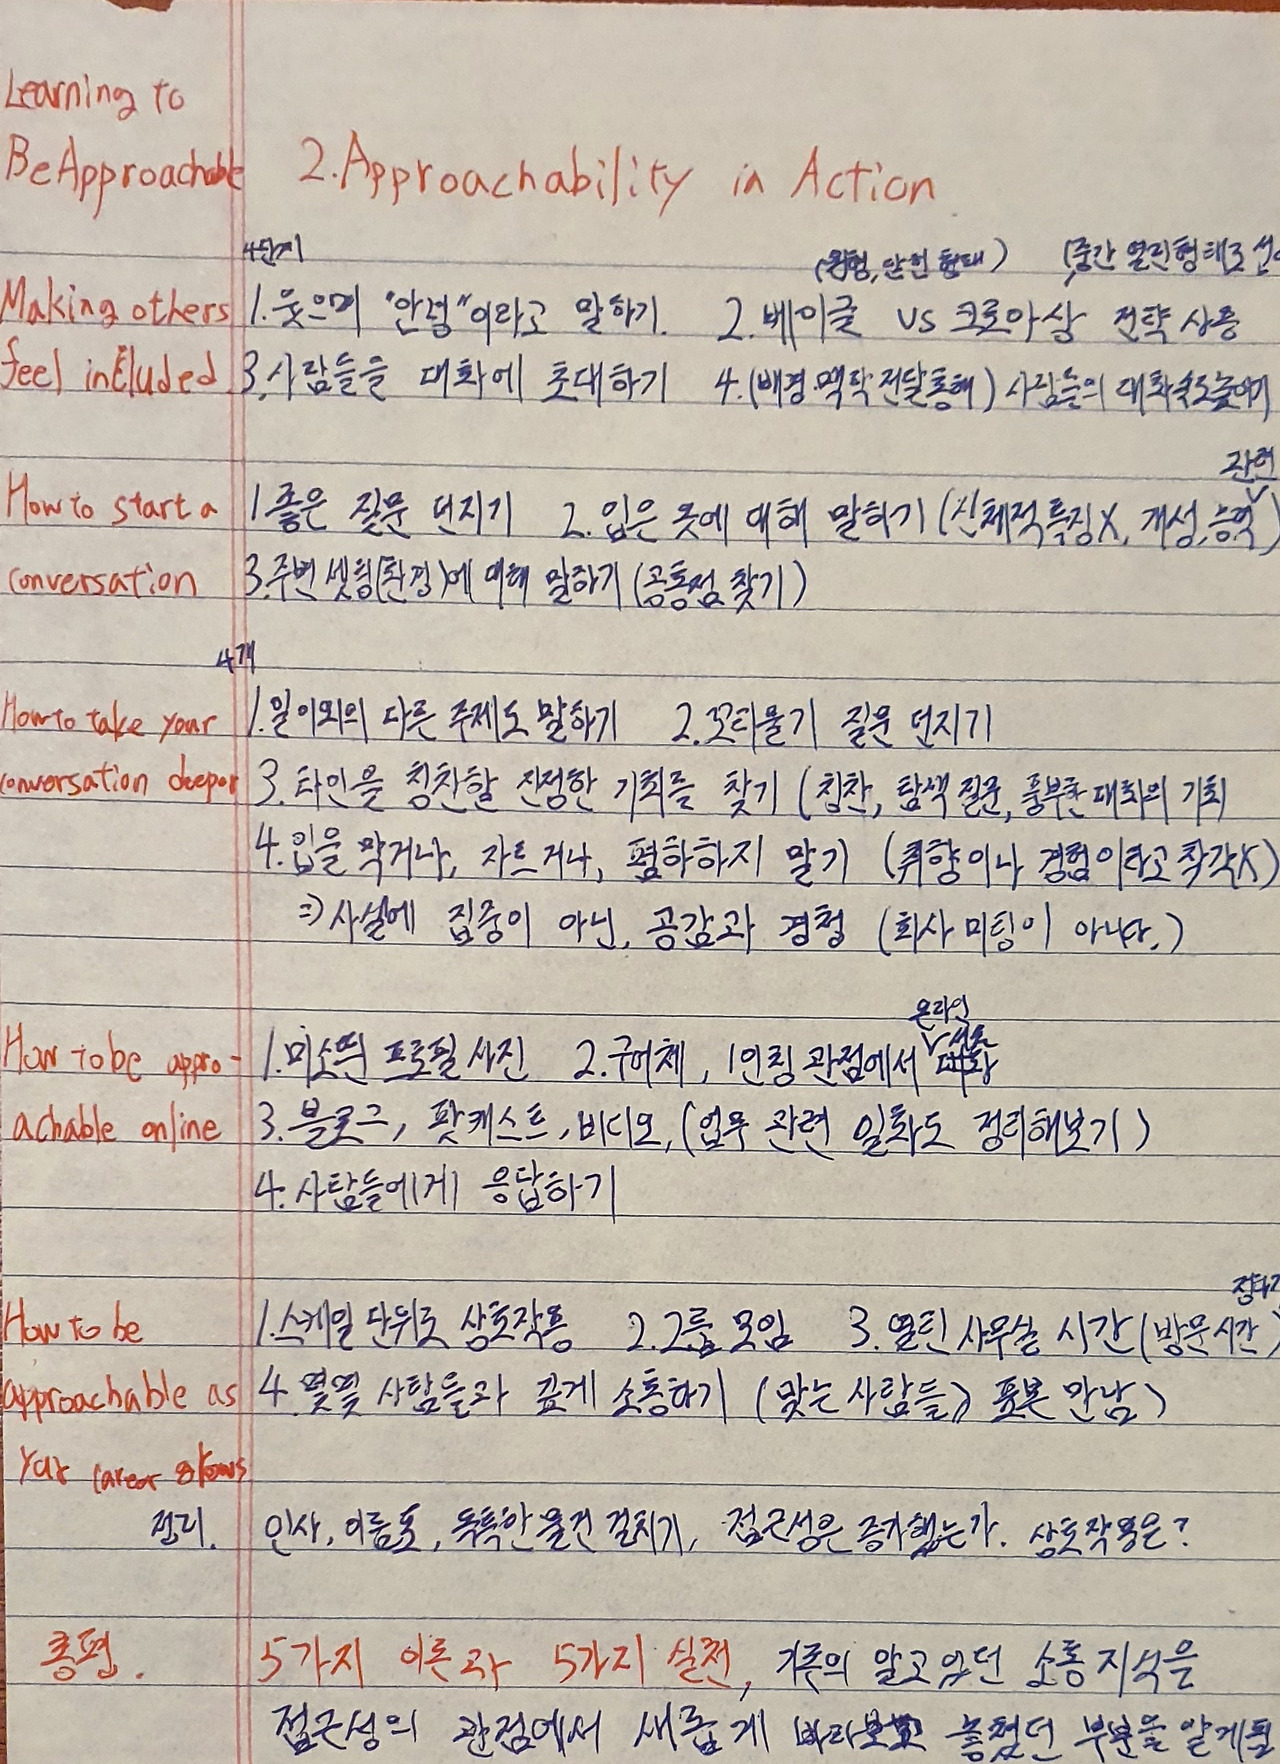 Learning to
Be Approachable 2. Approachability in Action
4단계 (원형, 닫힌 형태) (중간 열린형태로
Making others 1. 웃으며 "안녕"이라고 말하기. 2. 베이글 VS 크로아상 전략 사용
feel included 3. 사람들을 대화에 초대하기 4. (배경 맥락 전달통해) 사람들의 대화속도높이기
관련
How to start a 1. 좋은 질문 던지기 2. 입은 옷에 대해 말하기 (신체적특징X, 개성,
conversation 3. 주변 셋팅(환경)에 대해 말하기 (공통점 찾기)
4개
How to take your 1. 일 이외의 다른 주제도 말하기 2. 꼬리물기 질문 던지기
conversation deeper 3. 타인을 칭찬할 진정한 기회를 찾기 (칭찬, 탐색 질문, 풍부한 대화의 기회
4. 입을 막거나, 자르거나, 폄하하지 말기 (취향이나 경험이라고 착각X)
⇒ 사실에 집중이 아닌, 공감과 경청 (회사 미팅이 아니다.)
온라인
How to be appro- 1. 미소띤 프로필 사진 2. 구어체, 1인칭 관점에서
achable online 3. 블로그, 팟캐스트, 비디오, (업무 관련 일화도 정리해보기)
4. 사람들에게 응답하기
How to be 1. 스케일 단위로 상호작용 2. 그룹 모임 3. 열린 사무실 시간 (방문시간)
approachable as 4. 몇몇 사람들과 깊게 소통하기 (맞는 사람들, 표본 만남)
your career grows
정리. 인사, 이름표, 독특한 물건 걸치기, 접근성은 증가했는가. 상호작용은?
총평. 5가지 이론과 5가지 실전, 기존의 알고있던 소통 지식을
접근성의 관점에서 새롭게 바라보고 놓쳤던 부분을 알게됨